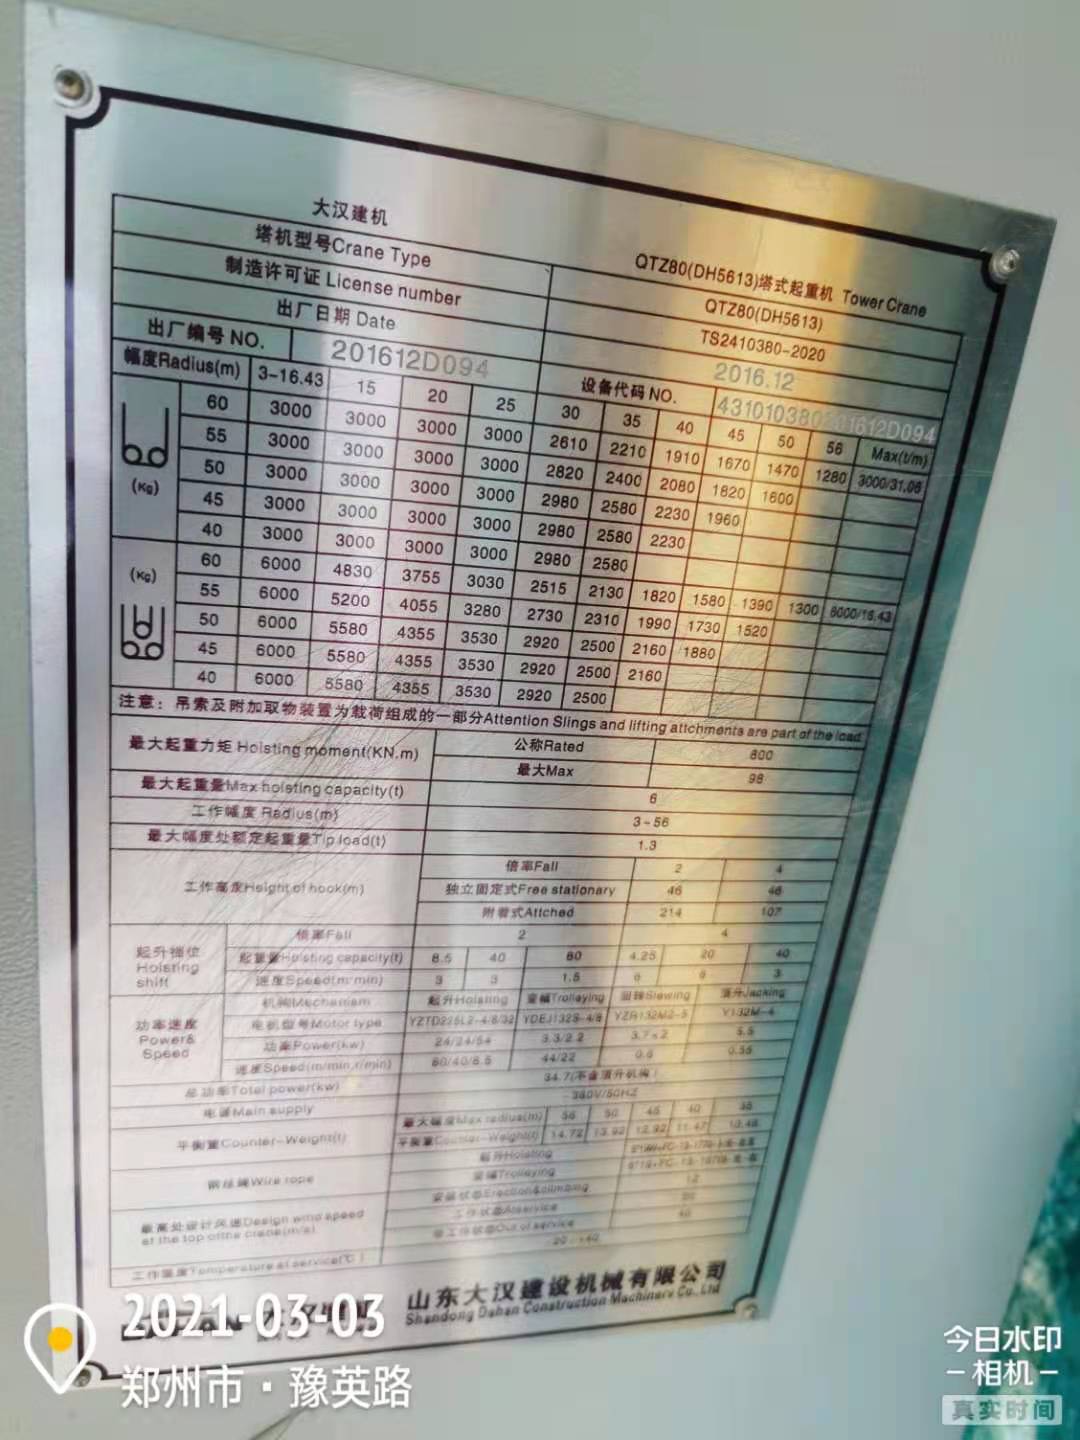 大汉建机 QTZ80(DH5613)塔式起重机 Tower Crane
塔机型号Crane Type QTZ80(DH5613)
制造许可证 License number TS2410380-2020
出厂日期 Date 2016.12
出厂编号 NO. 201612D094 设备代码 NO. 431010380201612D094
幅度Radius(m) 3-16.43 15 20 25 30 35 40 45 50 56 Max(t/m)
60 3000 3000 3000 3000 2610 2210 1910 1670 1470 1280 3000/31.06
55 3000 3000 3000 3000 2820 2400 2080 1820 1600
50 3000 3000 3000 3000 2980 2580 2230 1960
(Kg)
45 3000 3000 3000 3000 2980 2580 2230
40 3000 3000 3000 3000 2980 2580
60 6000 4830 3755 3030 2515 2130 1820 1580 1390 1300 6000/16.43
(Kg)
55 6000 5200 4055 3280 2730 2310 1990 1730 1520
50 6000 5580 4355 3530 2920 2500 2160 1880
45 6000 5580 4355 3530 2920 2500 2160
40 6000 5580 4355 3530 2920 2500
注意：吊索及附加取物装置为载荷组成的一部分Attention Slings and lifting attichments are part of the load.
最大起重力矩 Hoisting moment(KN.m) 公称Rated 800
最大Max 98
最大起重量Max hoisting capacity(t) 6
工作幅度 Radius(m) 3-56
最大幅度处额定起重量Tip load(t) 1.3
工作高度Height of hook(m) 倍率Fall 2 4
独立固定式Free stationary 46 46
附着式Attched 214 107
起升档位 Hoisting shift 倍率Fall 2 4
起重量Hoisting capacity(t)
速度Speed(m/min)
功率速度 Power& Speed 机构Mechanism 起升Hoisting 变幅Trolleying 回转Slewing 顶升Jacking
电机型号Motor type
功率Power(kw) 24/24/54 3.3/2.2 5.5
速度Speed(m/min,r/min) 80/40/8.5 44/22 0.6
总功率Total power(kw) 34.7(不含顶升机构)
电源Main supply 380V/50HZ
平衡重Counter-Weight(t) 最大幅度Max radius(m) 56 50 45 40 35
平衡重Counter-Weight(t) 14.72 13.92 12.92 11.47
钢丝绳Wire rope 起升Hoisting
变幅Trolleying
最高处设计风速Design wind speed at the top of the crane(m/s) 安装状态Erection&climbing 12
工作状态At service 20
非工作状态Out of service
工作温度Temperature at service(℃) -20-+40
山东大汉建设机械有限公司
Shandong Dahan Construction Machinery Co.,Ltd
2021-03-03
郑州市·豫英路
今日水印
-相机-
真实时间